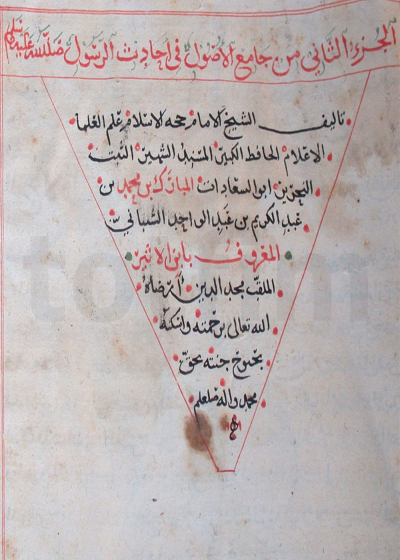 الجزء الثاني من جامع الاصول في احاديث الرسول صلى الله عليه وسلم
تاليف الشيخ الامام حجه الاسلام علم العلما
الاعلام الحافظ الكبير المسند الشهير الثبت
النحرير ابو السعادات المبارك بن محمد بن
عبد الكريم بن عبد الواحد الشيباني
المعروف بابن الاثير
الملقب مجد الدين ارضاه
الله تعالى برحمته واسكنه
بحبوح جنته بحق
محمد واله صلعلم